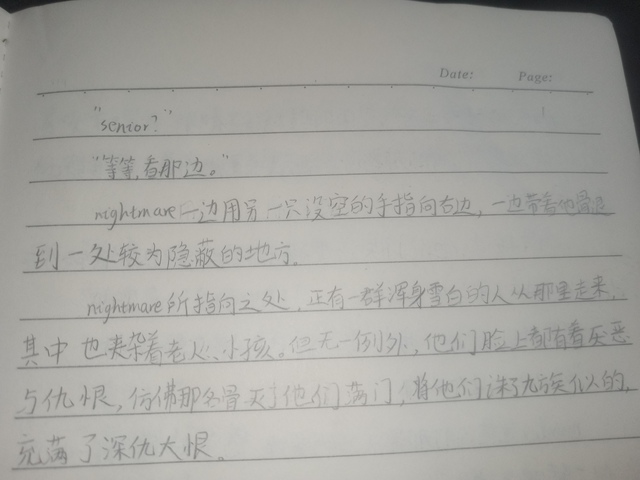 Date: Page:
"senior?"
"等等,看那边。"
nightmare一边用另一只没空的手指向右边,一边带着他骨退
到一处较为隐蔽的地方。
nightmare所指向之处,正有一群浑身雪白的人从那里走来,
其中也夹杂着老人、小孩。但无一例外,他们脸上都有着厌恶
与仇恨,仿佛那名骨灭了他们满门,将他们诛了九族似的,
充满了深仇大恨。